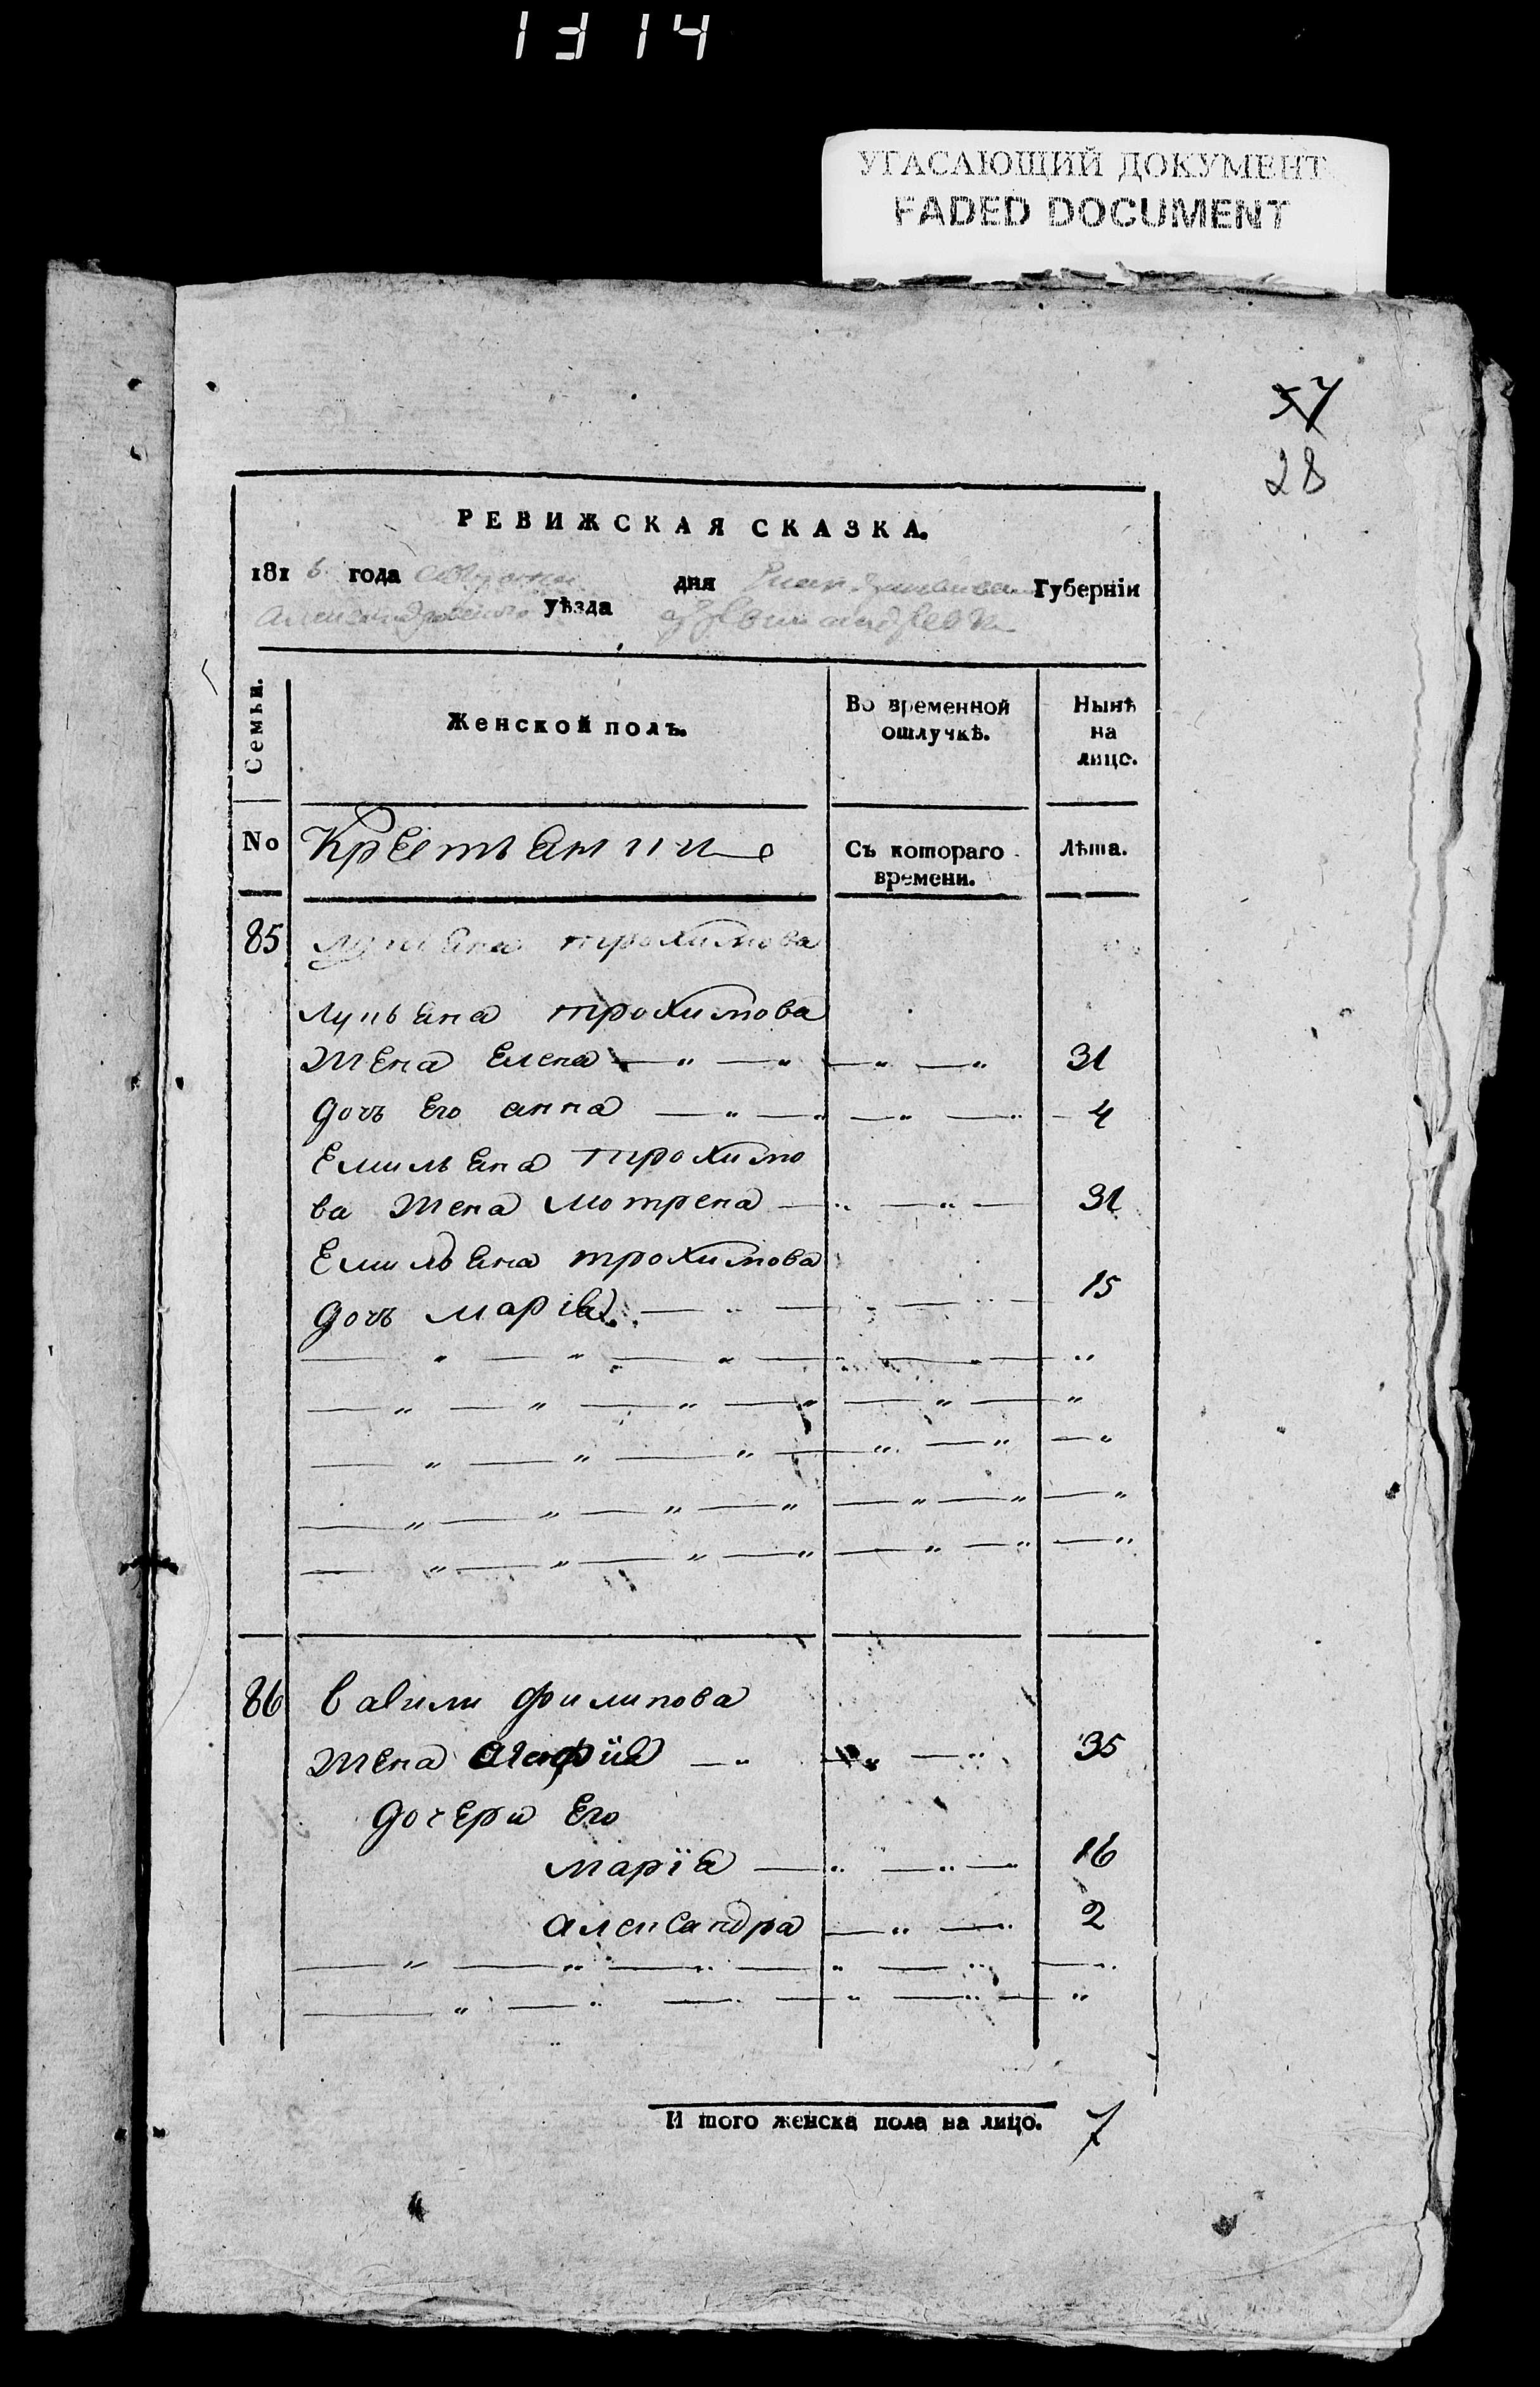 1314
УГАСАЮЩИЙ ДОКУМЕНТ
FADED DOCUMENT
57
28
РЕВИЖСКАЯ СКАЗКА.
181 6 года дня Губерніи
уѣзда
Семьи.
Женской полъ.
Во временной
отлучкѣ.
Нынѣ
на
лицо.
No
Съ котораго
времени.
Лѣта.
85 трохимова
Лукьяна трохимова
Жена Елена — " — " — " — " 31
дочь Его анна — " — " — " — " — 4
Емильяна трохимо
ва Жена Мотрена — " — " — 31
Емильяна трохимова
дочь марія — " — " — " — 15
86 Вавили филипова
Жена агафія — " — " — " 35
дочери Его
марія — " — " — 16
александра — " — " 2
И того женска пола на лицо. 7